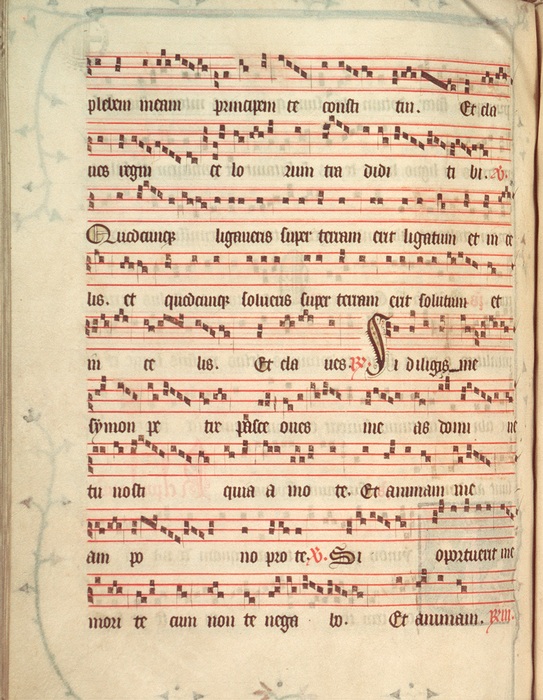 plebem meam principem te consti tui. Et cla
ues regni ce lo rum tra didi ti bi. V.
Quodcunque ligaueris super terram erit ligatum et in ce
lis. et quodcunque solueris super terram erit solutum et
in ce lis. Et cla ues. R. Si diligis me
symon pe tre pasce oues me as domi ne
tu nosti quia a mo te. Et animam me
am po no pro te. V. Si oportuerit me
mori te cum non te nega bo. Et animam.